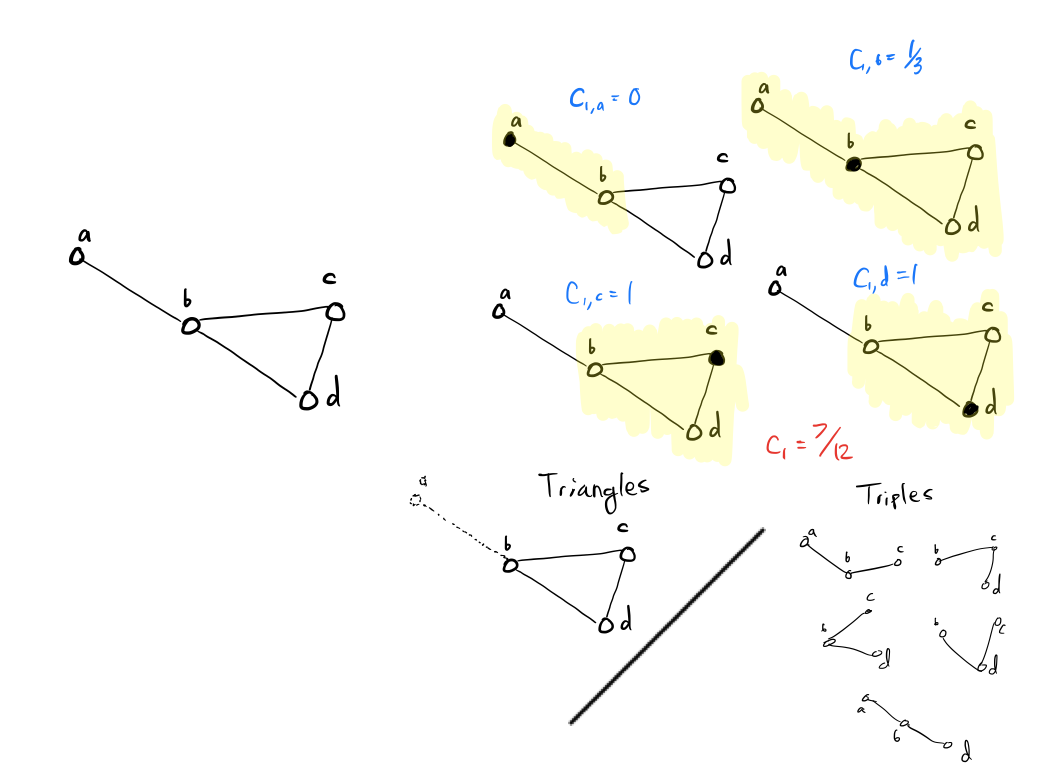 a
b
c
d
C₁,ₐ = 0
a
b
c
d
C₁,b = 1/3
a
b
c
d
C₁,c = 1
a
b
c
d
C₁,d = 1
a
b
c
d
C₁ = 7/12
Triangles
a
b
c
d
Triples
a
b
c
b
c
d
b
c
d
b
c
d
a
b
d